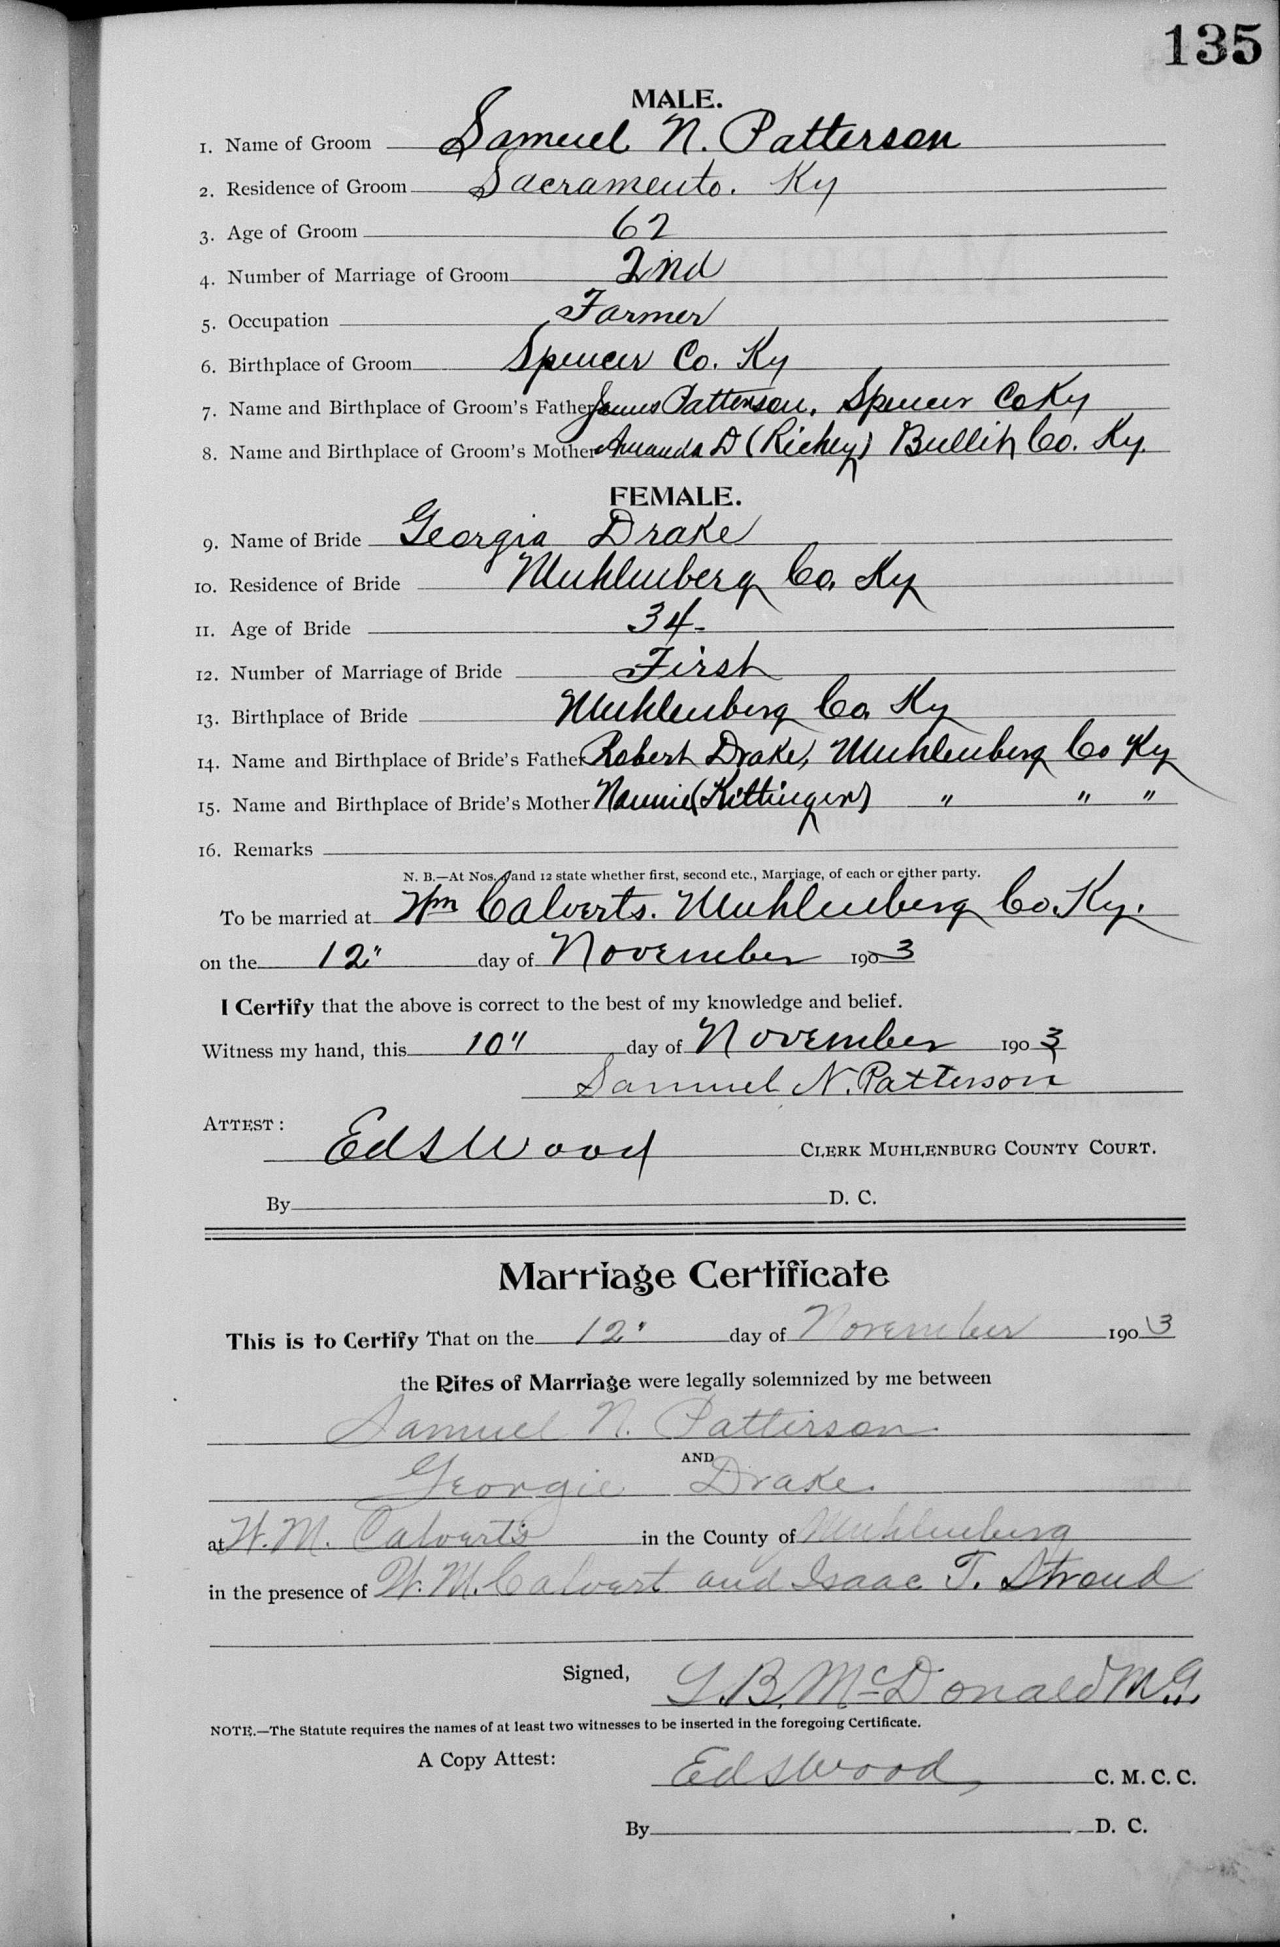 135
MALE.
1. Name of Groom Samuel N. Patterson
2. Residence of Groom Sacramento. Ky
3. Age of Groom 62
4. Number of Marriage of Groom 2nd
5. Occupation Farmer
6. Birthplace of Groom Spencer Co. Ky
7. Name and Birthplace of Groom's Father James Patterson, Spencer Co Ky
8. Name and Birthplace of Groom's Mother Amanda D (Richey) Bullitt Co. Ky.
FEMALE.
9. Name of Bride Georgia Drake
10. Residence of Bride Muhlenberg Co. Ky
11. Age of Bride 34-
12. Number of Marriage of Bride First
13. Birthplace of Bride Muhlenberg Co. Ky
14. Name and Birthplace of Bride's Father Robert Drake, Muhlenberg Co Ky
15. Name and Birthplace of Bride's Mother Nannie (Kittinger) " " "
16. Remarks
N. B.—At Nos. 4 and 12 state whether first, second etc., Marriage, of each or either party.
To be married at Wm Calverts. Muhlenberg Co. Ky.
on the 12" day of November 1903
I Certify that the above is correct to the best of my knowledge and belief.
Witness my hand, this 10" day of November 1903
Samuel N. Patterson
ATTEST:
Ed S Wood CLERK MUHLENBURG COUNTY COURT.
By D. C.
Marriage Certificate
This is to Certify That on the 12" day of November 1903
the Rites of Marriage were legally solemnized by me between
Samuel N. Patterson
AND
Georgie Drake.
at W. M. Calverts in the County of Muhlenberg
in the presence of W. M. Calvert and Isaac T. Stroud
Signed, McDonald M.G.
NOTE.—The Statute requires the names of at least two witnesses to be inserted in the foregoing Certificate.
A Copy Attest:
Ed S Wood, C. M. C. C.
By D. C.